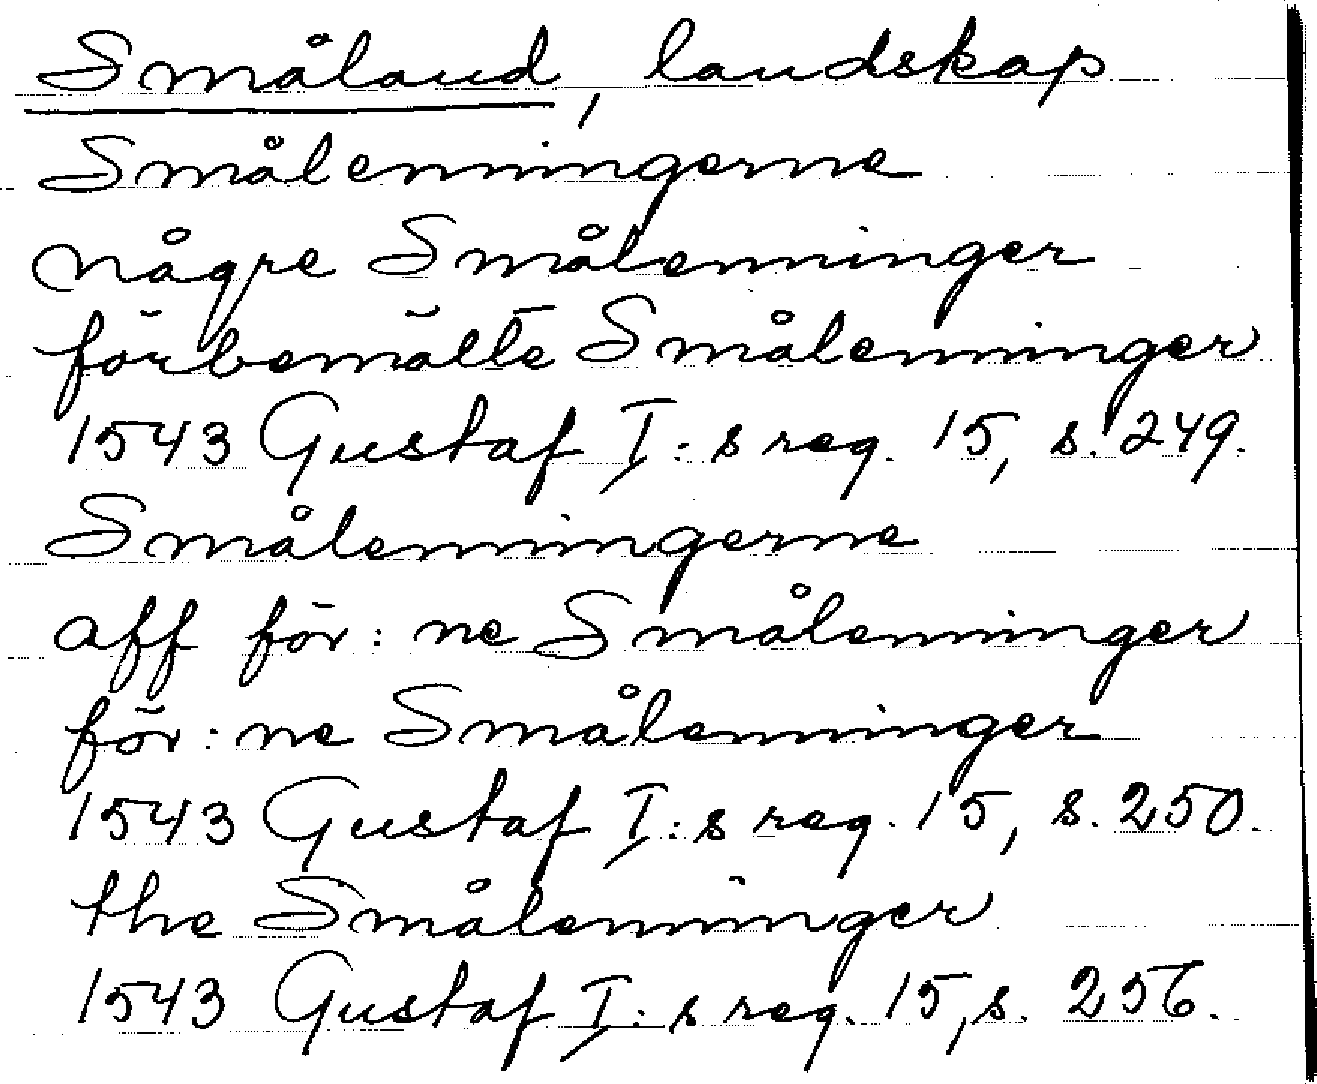 Småland, landskap
Smålenningerne
någre Smålenninger
förbemälte Smålenninger
1543 Gustaf I:s reg. 15, s. 249.
Smålenningerne
aff för:ne Smålenninger
för:ne Smålenninger
1543 Gustaf I:s reg. 15, s. 250.
the Smålenninger
1543 Gustaf I:s reg. 15, s. 256.